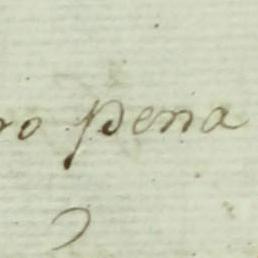 ro pena